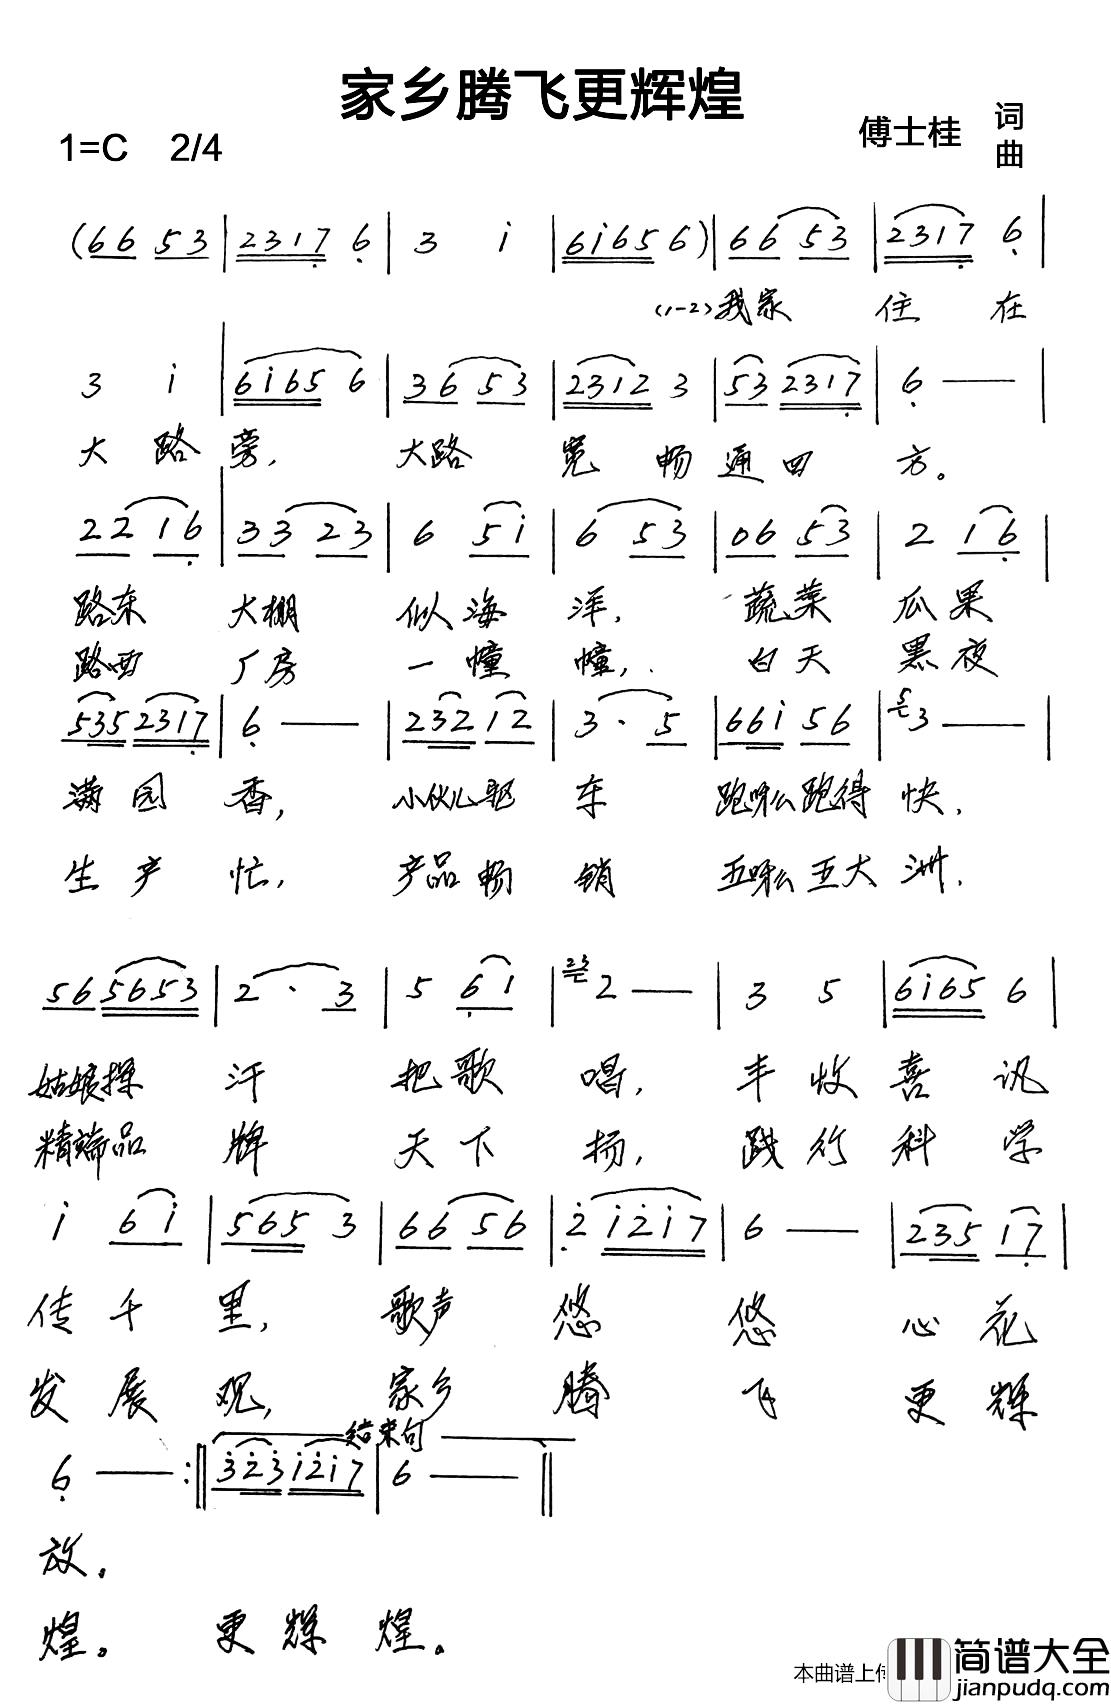 家乡腾飞更辉煌
1=C 2/4
傅士桂 词
曲
(66 53 | 2317 6 | 3 i | 6i65 6) | 66 53 | 2317 6 |
(1-2)我家 住 在
3 i | 6i65 6 | 36 53 | 2312 3 | 53 2317 | 6 — |
大 路 旁, 大路 宽 畅 通 四 方。
22 16 | 33 23 | 6 5i | 6 53 | 06 53 | 2 16 |
路东 大棚 似 海 洋, 蔬菜 瓜果
路西 厂房 一 幢 幢, 白天 黑夜
535 2317 | 6 — | 232 12 | 3 · 5 | 66i 56 | 5 3 — |
满 园 香, 小伙儿驱 车 跑呀么跑得 快,
生 产 忙, 产品畅 销 五呀么五大 洲,
56 5653 | 2 · 3 | 5 61 | 23 2 — | 3 5 | 6i65 6 |
姑娘擦 汗 把歌 唱, 丰 收 喜 讯
精端品 牌 天下 扬, 践 行 科 学
i 6i | 565 3 | 66 56 | 2 i2i7 | 6 — | 235 17 |
传 千 里, 歌声 悠 悠 心 花
发 展 观, 家乡 腾 飞 更 辉
结束句
6 — :‖ 323 i2i7 | 6 — ‖
放。
煌。 更 辉 煌。
本曲谱上传
简谱大全
jianpudq.com